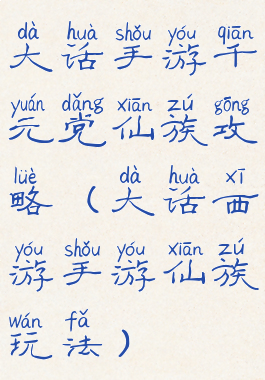 dà huà shǒu yóu qiān
大话手游千
yuán dǎng xiān zú gōng
元党仙族攻
lüè dà huà xī
略（大话西
yóu shǒu yóu xiān zú
游手游仙族
wán fǎ
玩法）